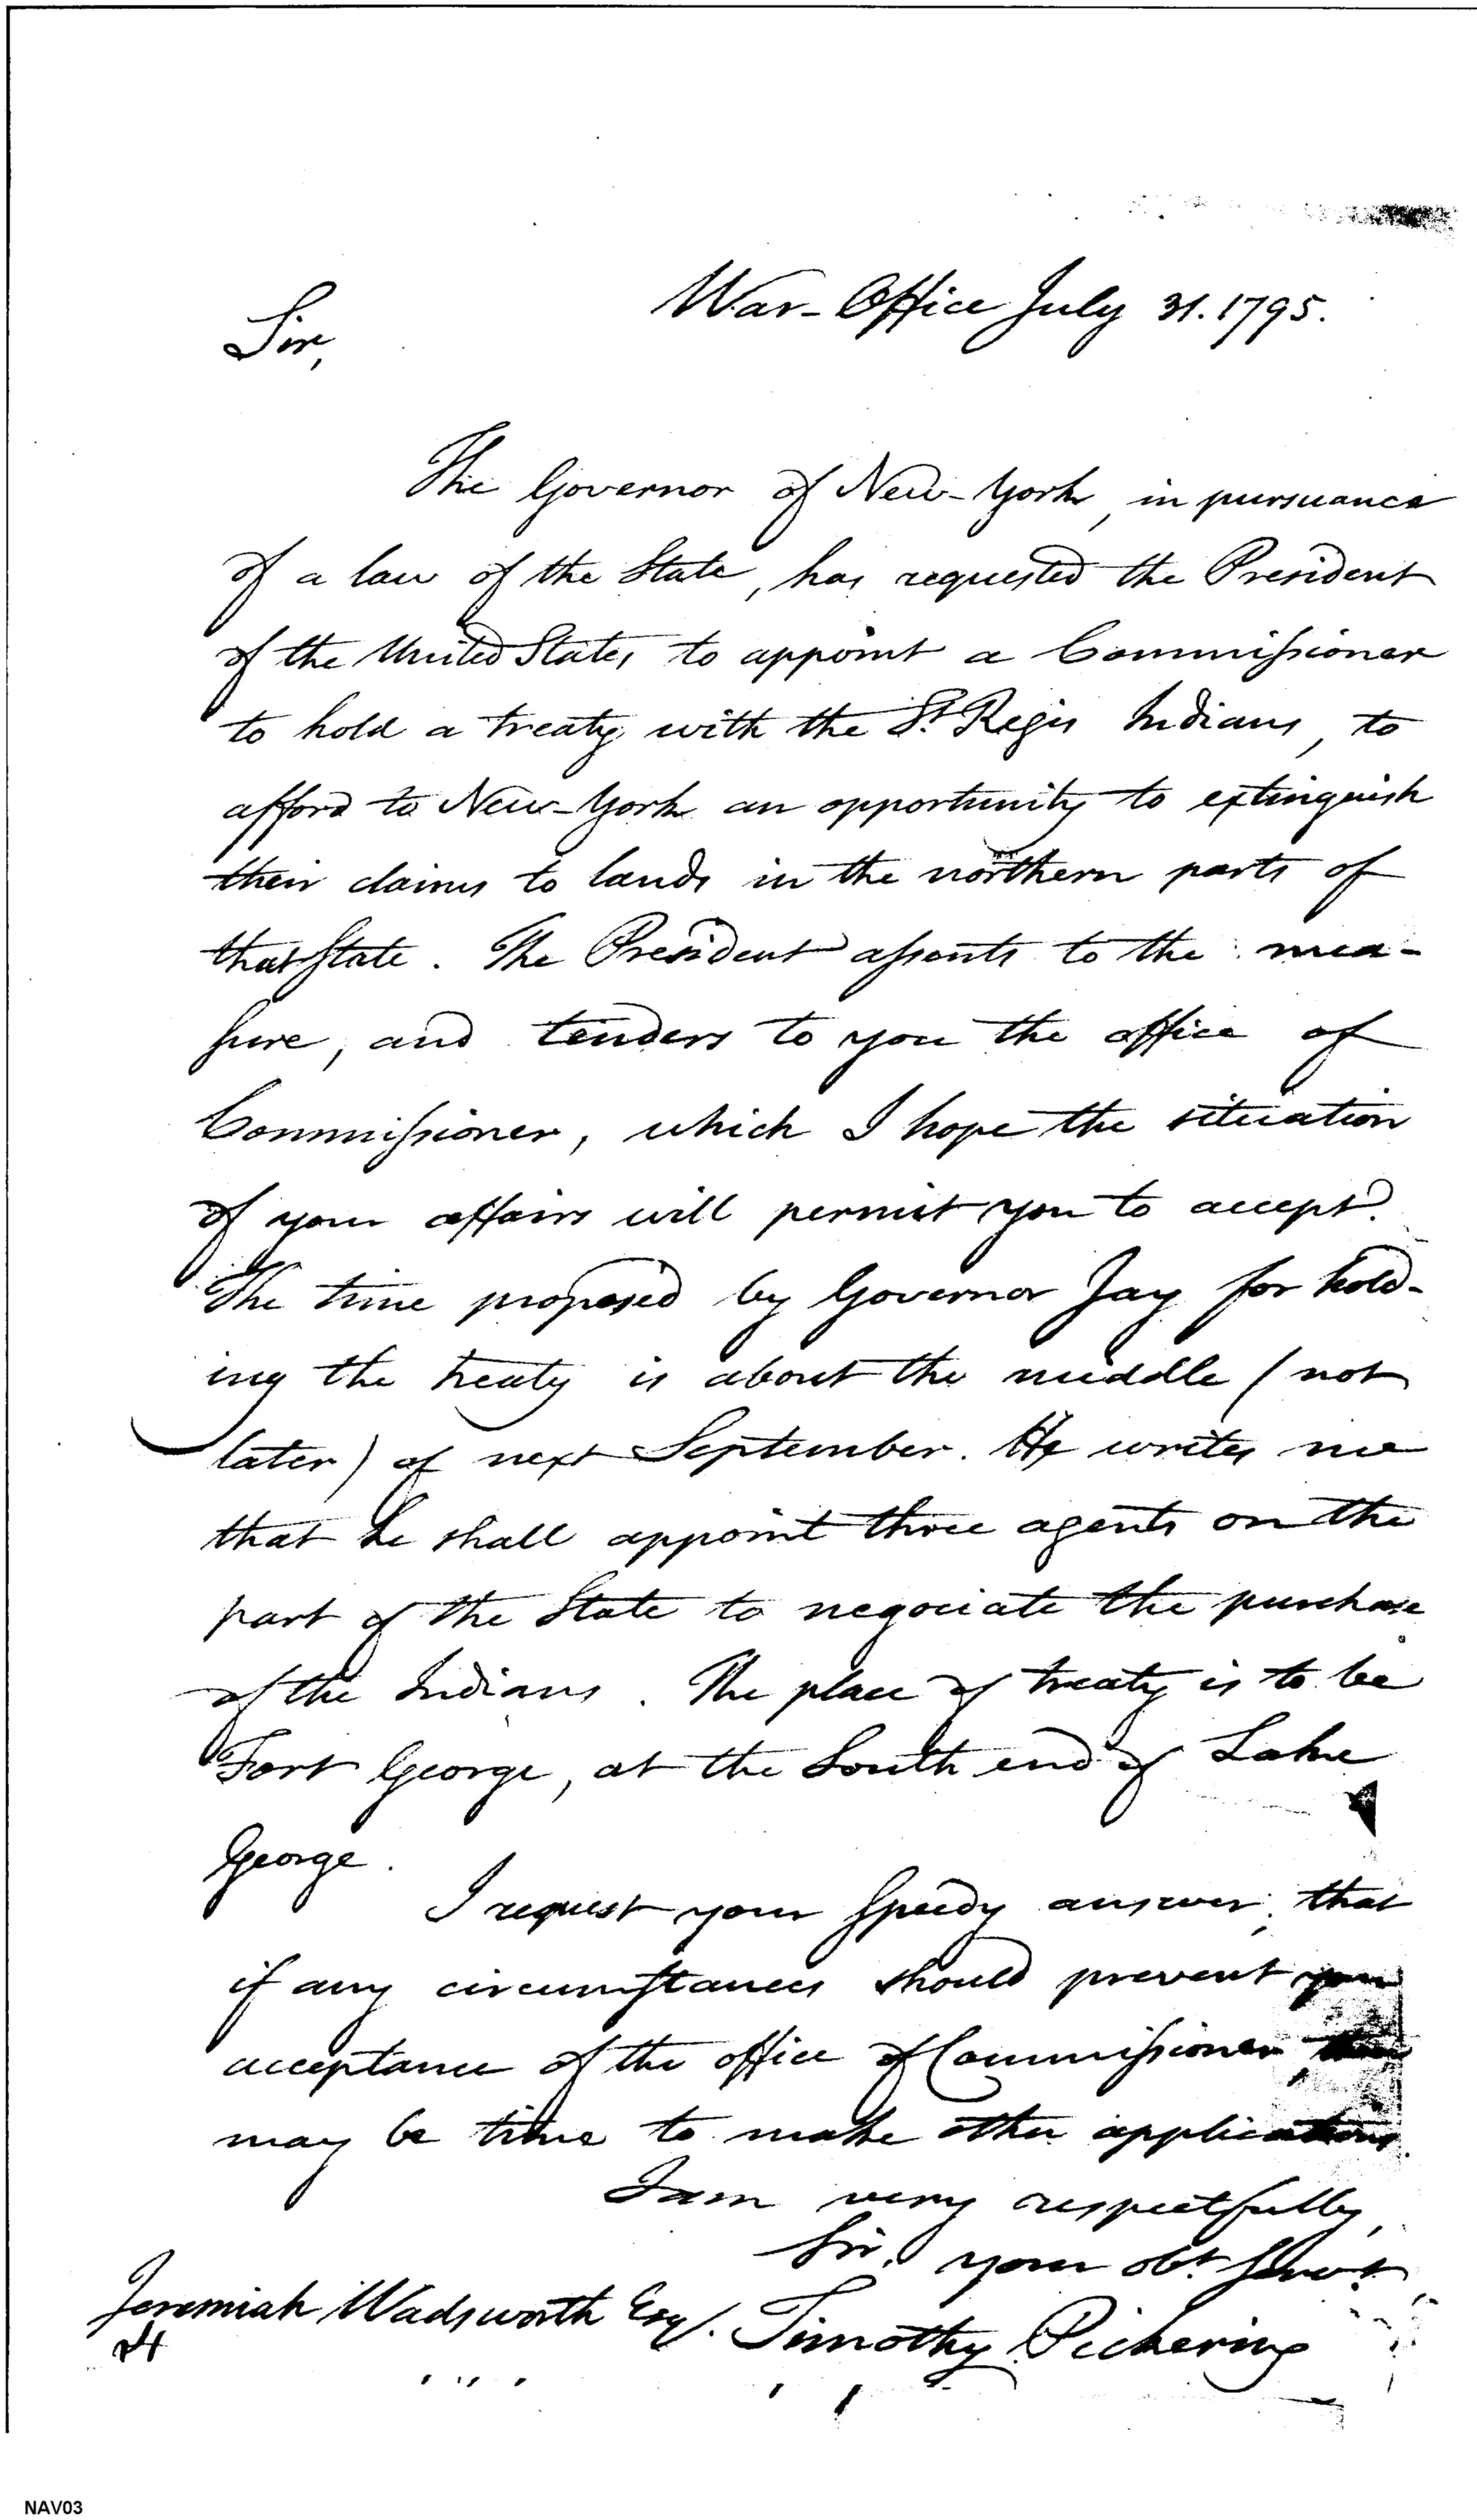 War-Office July 31. 1795.
Sir,
The Governor of New-York, in pursuance
of a law of the State, has requested the President
of the United States to appoint a Commissioner
to hold a treaty with the St. Regis Indians, to
afford to New-York an opportunity to extinguish
their claims to lands in the northern parts of
that State. The President assents to the mea-
sure, and tenders to you the office of
Commissioner, which I hope the situation
of your affairs will permit you to accept.
The time proposed by Governor Jay for hold-
ing the treaty is about the middle (not
later) of next September. He writes me
that he shall appoint three agents on the
part of the State to negociate the purchase
of the Indians. The place of treaty is to be
Fort George, at the South end of Lake
George.
I request your speedy answer; that
if any circumstances should prevent your
acceptance of the office of Commissioner,
may be time to make other applications.
I am very respectfully,
Sir, your obt. servt.
Jeremiah Wadsworth Esq. Timothy Pickering
NAV03